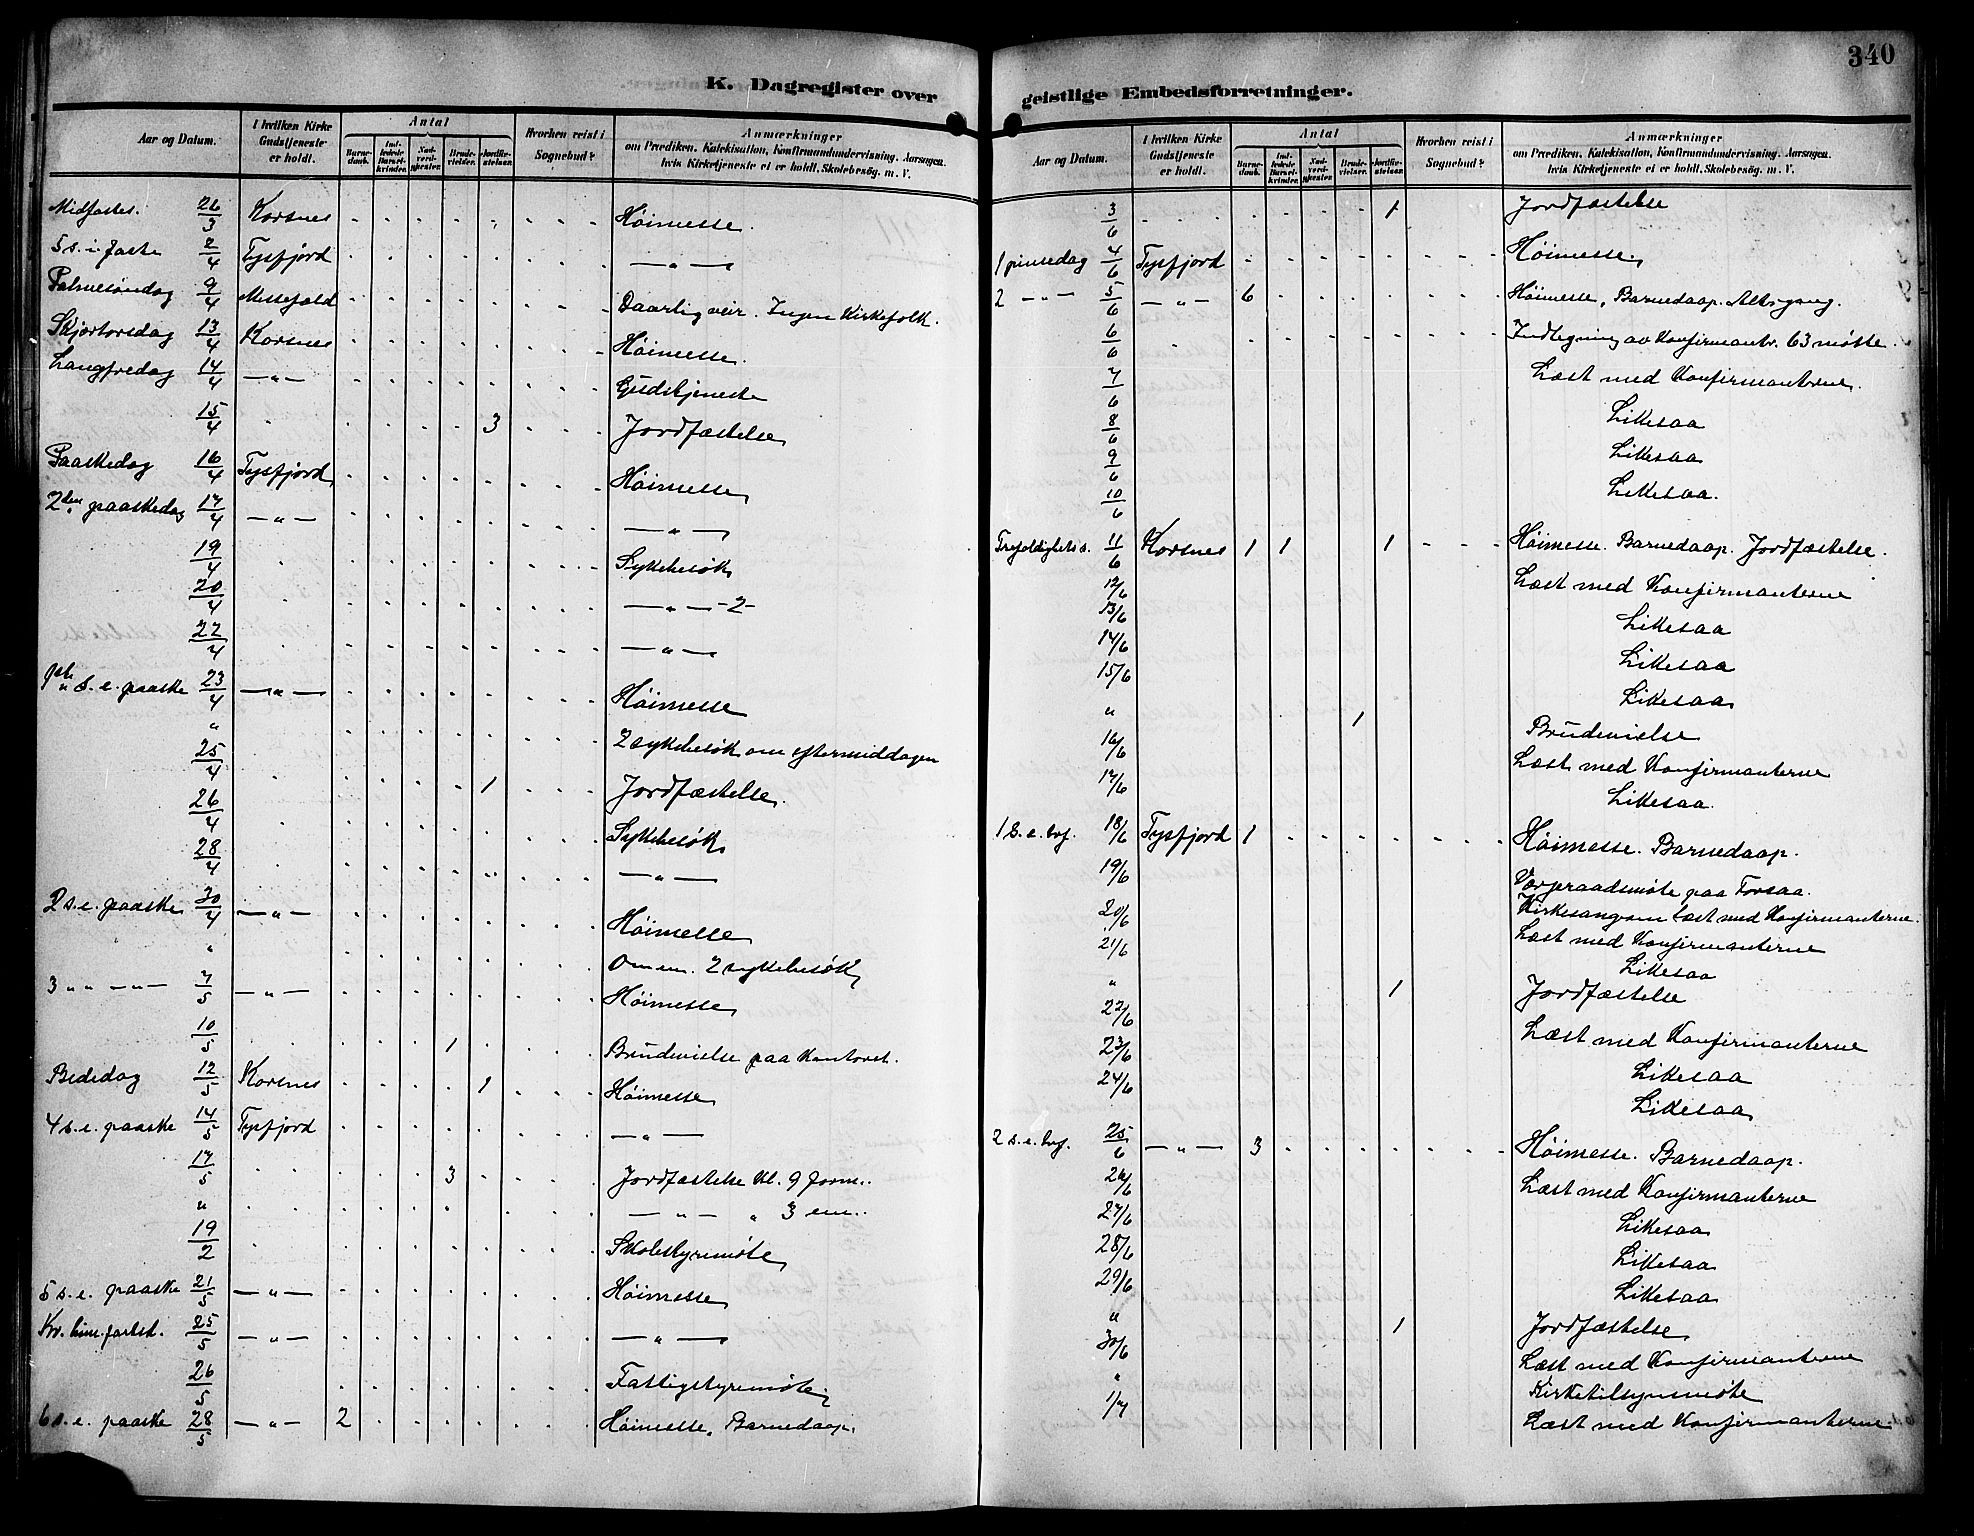 340
K. Dagregister over
Aar og Datum. I hvilken Kirke Gudstjeneste er holdt. Antal Barne-daab. Ind-ledede Barsel-kvinder. Nad-verd-gjester. Brude-vielser. Jordfæ-stelser. Hvorhen reist i Sognebud? Anmærkninger om Prædiken, Katekisation, Konfirmandundervisning, Aarsagen, hvis Kirketjeneste ei er holdt, Skolebesøg, m. V.
Midfastes. 26/3 Korsnes Høimesse.
5 s. i. faste 2/4 Tysfjord — " —
Palmesøndag 9/4 Daarlig veir. Ingen Kirkefolk.
Skjærtorsdag 13/4 Korsnes Høimesse.
Langfredag 14/4 — " — Gudstjeneste
15/4 3 Jordfæstelse
Paaskedag 16/4 Tysfjord Høimesse
2den paaskedag 17/4 — " — — " —
19/4 Sykebesøk
20/4 — " — -2-
22/4 — " —
s. e. paaske 23/4 — " — Høimesse
" 2 sykebesøk om eftermiddagen
25/4 1 Jordfæstelse.
26/4 Sykebesøk
28/4 — " —
2 s. e. paaske 30/4 — " — Høimesse
" Om em. 2 sykebesøk
3 " " — " — 7/5 — " — Høimesse
10/5 1 Brudevielse paa Kontoret.
Bededag 12/5 Korsnes 1 Høimesse
4 s. e. paaske 14/5 Tysfjord — " —
17/5 3 Jordfæstelse Kl. 9 form..
" — " — " 3 em..
19/2 Skolestyremøte
5 s. e. paaske 21/5 — " — Høimesse
Kr. him. fartsd. 25/5 — " — — " —
26/5 Fattigstyremøte
6 s. e. paaske 28/5 — " — 2 Høimesse, Barnedaap.
geistlige Embedsforretninger.
Aar og Datum. I hvilken Kirke Gudstjeneste er holdt. Antal Barne-daab. Ind-ledede Barsel-kvinder. Nad-verd-gjester. Brude-vielser. Jordfæ-stelser. Hvorhen reist i Sognebud? Anmærkninger om Prædiken, Katekisation, Konfirmandundervisning, Aarsagen, hvis Kirketjeneste ei er holdt, Skolebesøg, m. V.
3/6 1 Jordfæstelse
1 pinsedag 4/6 Tysfjord Høimesse.
2 — " — 5/6 — " — 6 Høimesse, Barnedaap. Altergang.
6/6 Indtegning av Konfirmanter. 63 møtte.
7/6 Læst med Konfirmanterne.
8/6 Likesaa
9/6 Likesaa
10/6 Likesaa.
Trefoldighets s. 11/6 Korsnes 1 1 1 Høimesse. Barnedaap. Jordfæstelse.
12/6 Læst med Konfirmanterne
13/6 Likesaa
14/6 Likesaa
15/6 Likesaa
" 1 Brudevielse
16/6 Læst med Konfirmanterne
17/6 Likesaa.
1 s. e. tref. 18/6 Tysfjord 1 Høimesse. Barnedaap.
19/6 Vergeraadsmøte paa Forsaa.
Kirkesangeren læst med Konfirmanterne.
20/6 Læst med Konfirmanterne
21/6 Likesaa
" 1 Jordfæstelse
22/6 Læst med Konfirmanterne
23/6 Likesaa
24/6 Likesaa
2 s. e. tref. 25/6 — " — 3 Høimesse. Barnedaap.
26/6 Læst med Konfirmanterne
27/6 Likesaa
28/6 Likesaa
29/6 Likesaa
" 1 Jordfæstelse
30/6 Læst med Konfirmanterne
" Kirketilsynsmøte
1/7 Læst med Konfirmanterne.